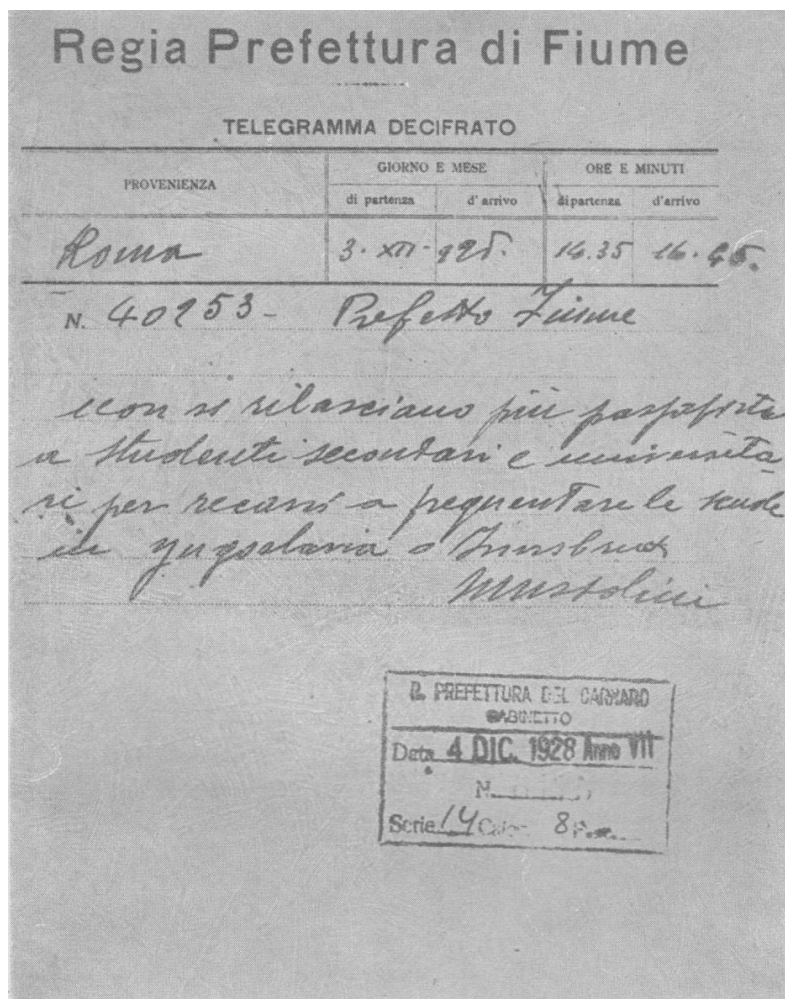 Regia Prefettura di Fiume
TELEGRAMMA DECIFRATO
PROVENIENZA
GIORNO E MESE
ORE E MINUTI
di partenza
d'arrivo
di partenza
d'arrivo
Roma
3. XII - 928.
14.35
16.45.
N. 40253 - Prefetto Fiume
non si rilasciano più passaporti
a studenti secondari e universita
ri per recarsi a frequentare le scuole
in Yugoslavia o Innsbruck
Mussolini
R. PREFETTURA DEL CARNARO
GABINETTO
Data 4 DIC. 1928 Anno VII
N.
Serie 14 8